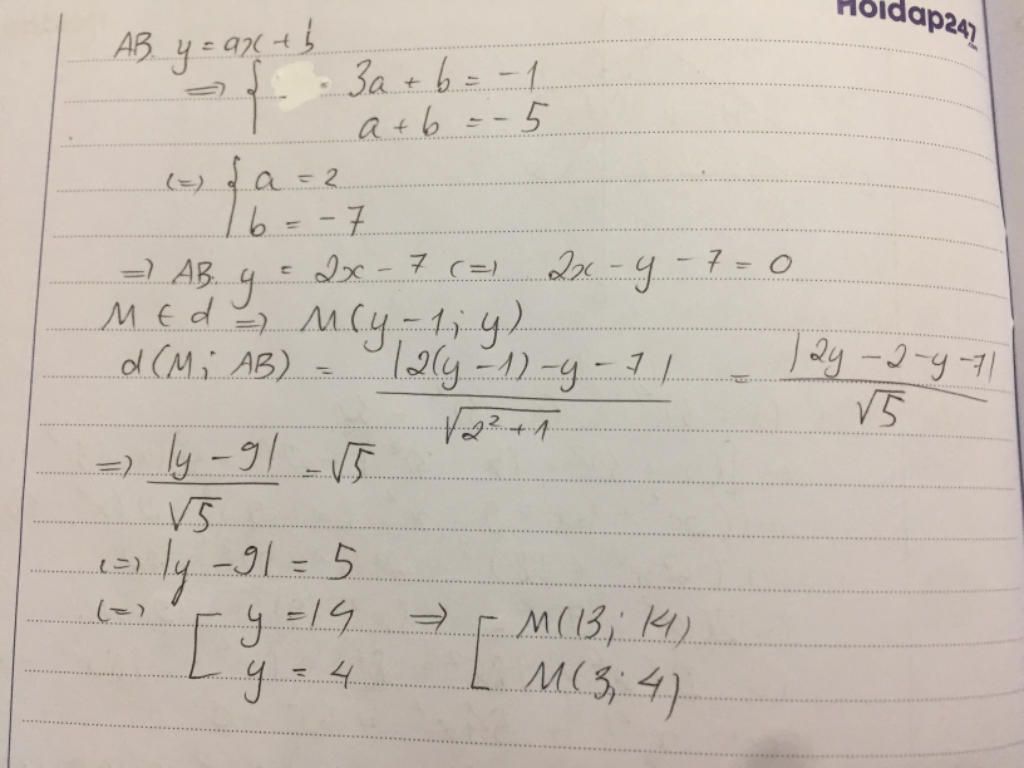 Hoidap247
.com
AB. y = ax + b
=> { 3a + b = -1
a + b = -5
(=) { a = 2
b = -7
=> AB. y = 2x - 7 (=) 2x - y - 7 = 0
M ∈ d => M(y - 1; y)
d(M; AB) = |2(y - 1) - y - 7| / √(2² + 1) = |2y - 2 - y - 7| / √5
=> |y - 9| / √5 = √5
(=) |y - 9| = 5
(=) [ y = 14 => [ M(13; 14)
y = 4 M(3; 4)